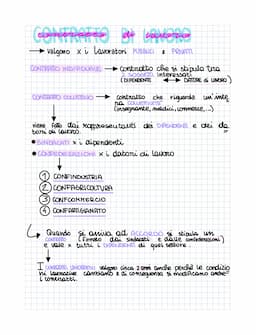 CONTRATTO DI LAVORO
→ Valgono x i lavoratori PUBBLICI e PRIVATI
CONTRATTO INDIVIDUALE → contratto che si stipula tra
2 SOGGETTI interessati
(DIPENDENTE ↔ DATORE di LAVORO)
CONTRATTO COLLETTIVO → contratto che riguarda un'inte
ra COLLETTIVITÀ
(insegnante, medici, commercio, ...)
viene fatto dai rappresentanti dei DIPENDENTI e dei da
tori di lavoro.
• SINDACATI x i dipendenti
• CONFEDERAZIONI x i datori di lavoro
① CONFINDUSTRIA
② CONFAGRICOLTURA
③ CONFCOMMERCIO
④ CONFARTIGIANATO
Quando si arriva ad ACCORDO si stipula un
CONTRATTO (firmato dai sindacati e dalle confederazioni)
e vale x tutti i DIPENDENTI di quel settore.
I CONTRATTI COLLETTIVI valgono circa 2 anni anche perché le condizio
ni lavorative cambiano e di conseguenza si modificano anche
i contratti.